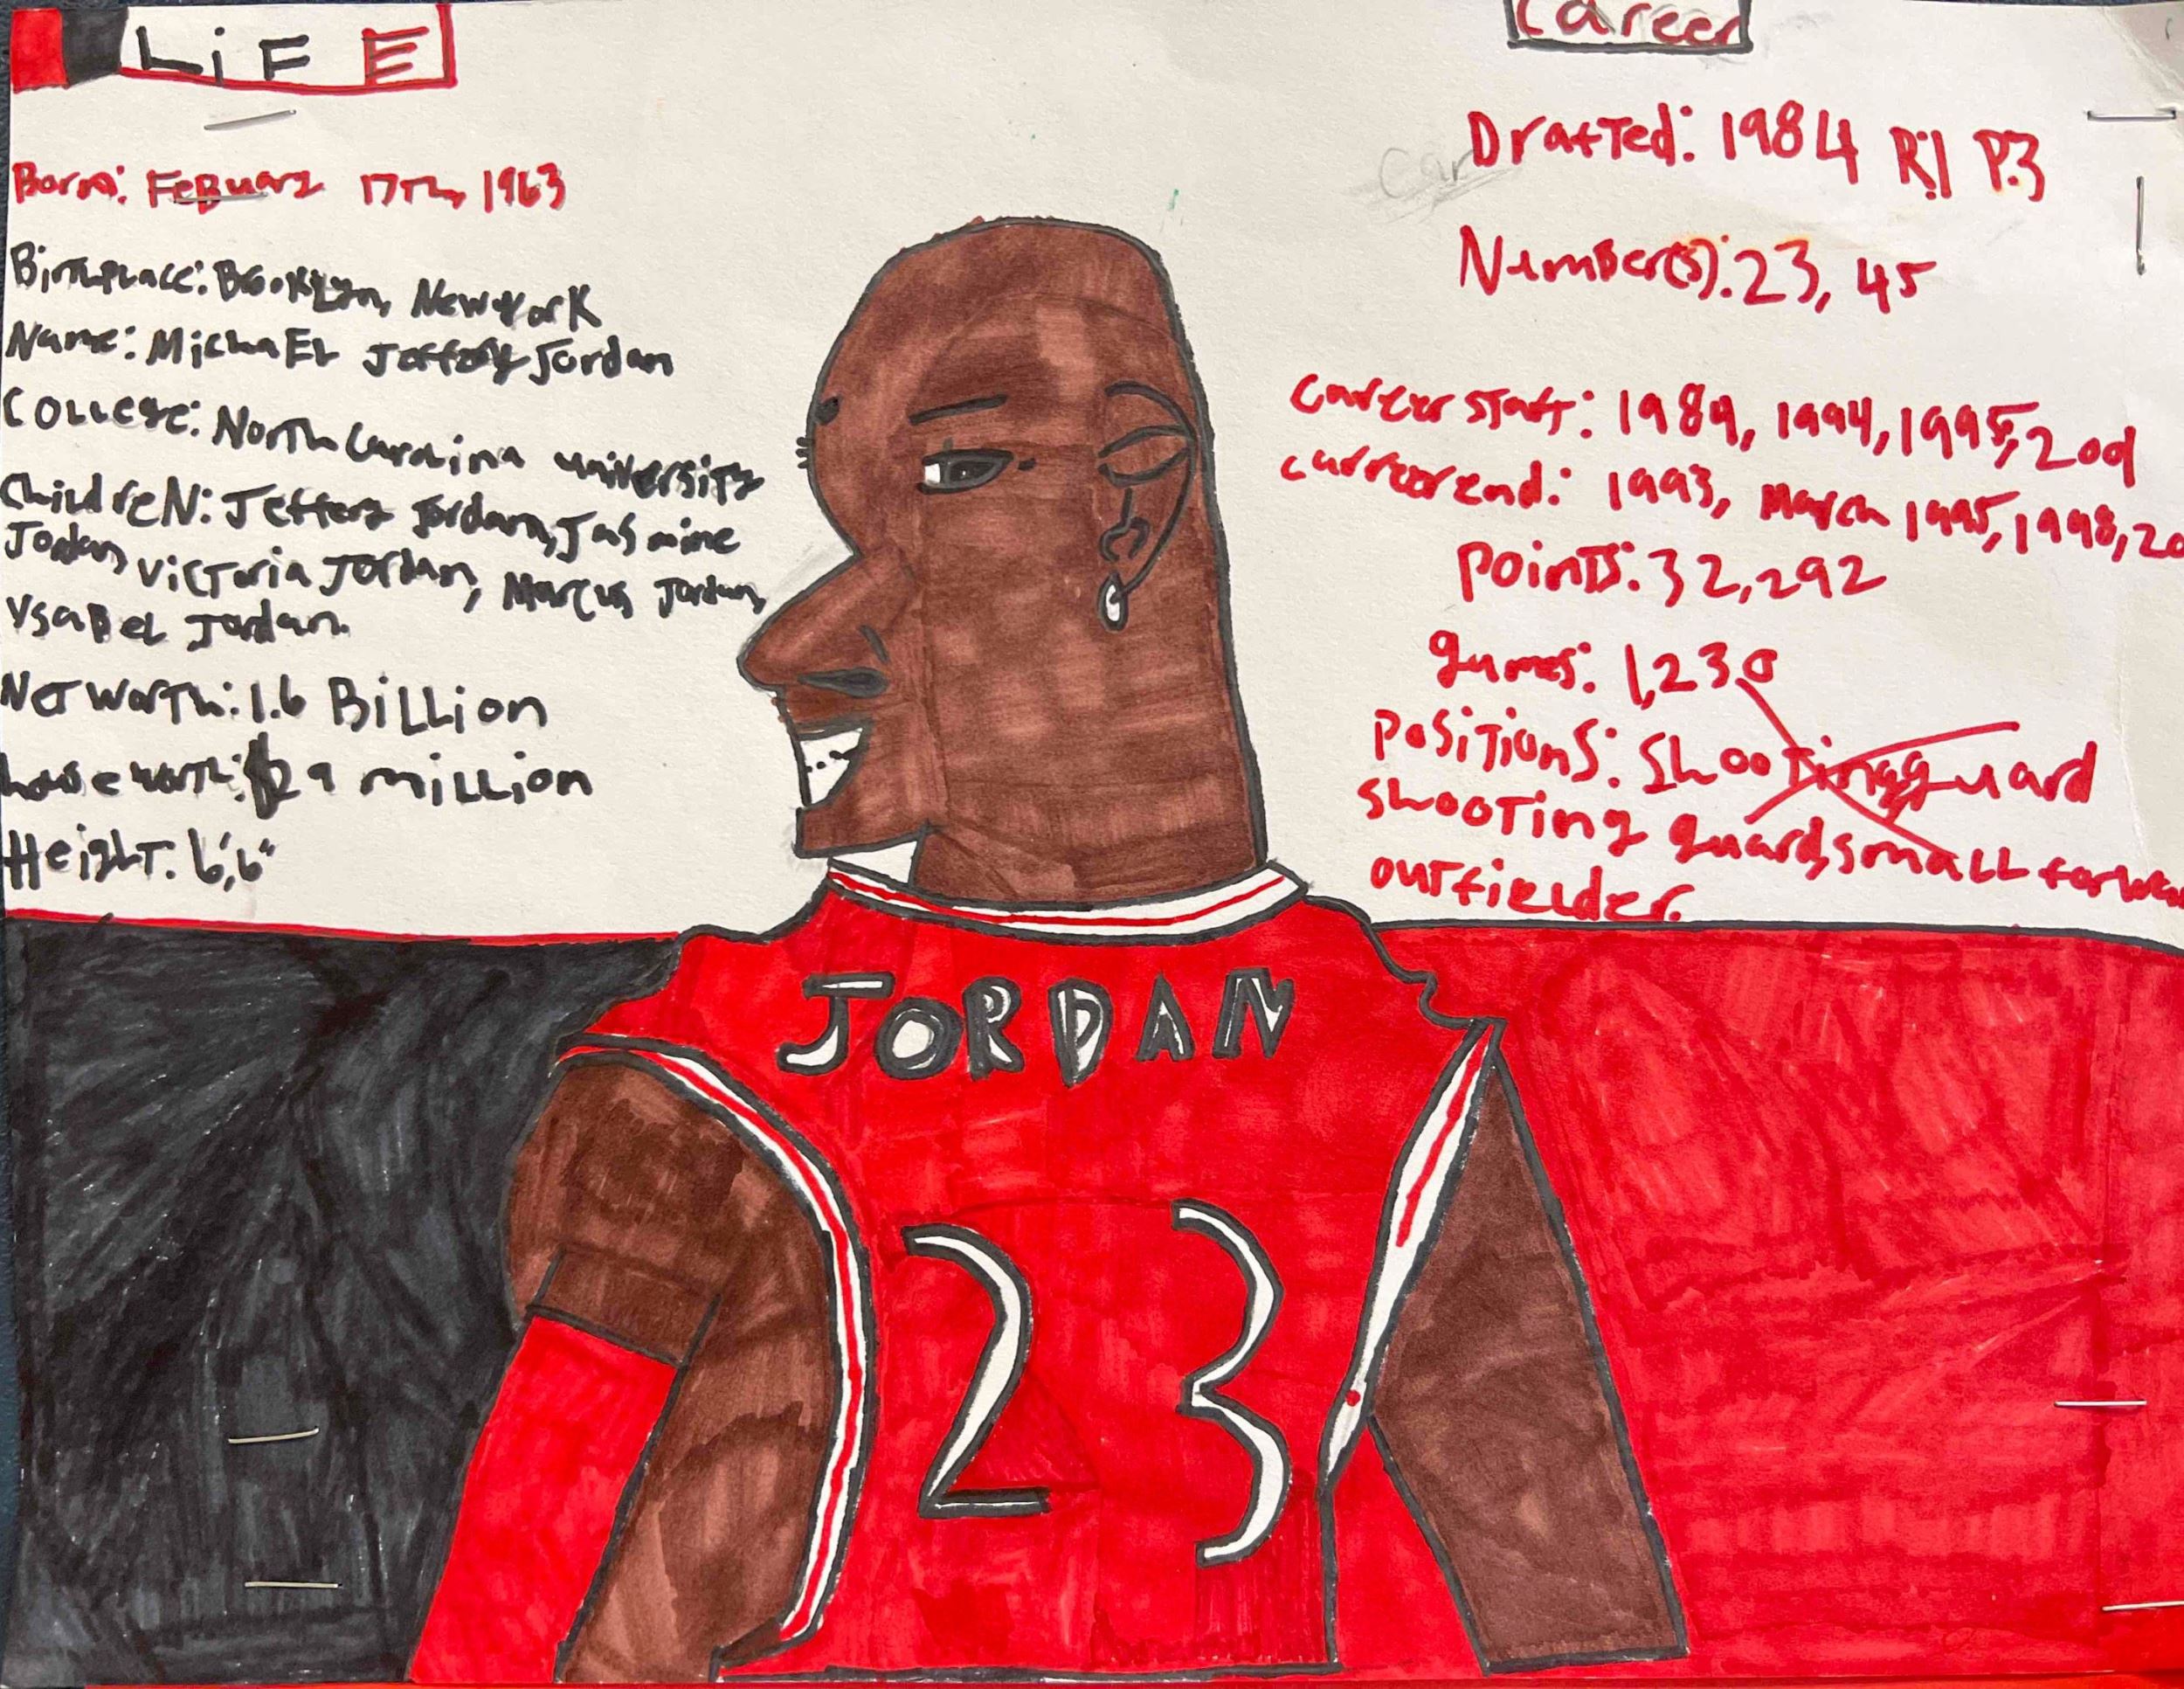 LiFE
Born: FeBuary 17Th, 1963
Birthplace: Brooklyn, New York
Name: MichaEL Jeffery Jordan
COLLege: North Carolina university
ChildreN: Jeffery Jordan, Jasmine
Jordan, VicToria Jordan, Marcus Jordan,
YsaBeL Jordan.
NeT worTh: 1.6 BiLLion
house worth: $29 miLLion
HeighT: 6',6"
Career
DrafTed: 1984 R.1 P.3
Number(s): 23, 45
career start: 1984, 1994, 1995, 2001
carreer end: 1993, March 1995, 1998, 20
PoinTs: 32,292
games: 1,230
PosiTionS: ShooTing guard
ShooTing guard, smaLL forwa
ouTfieLder.
JORDAN
23